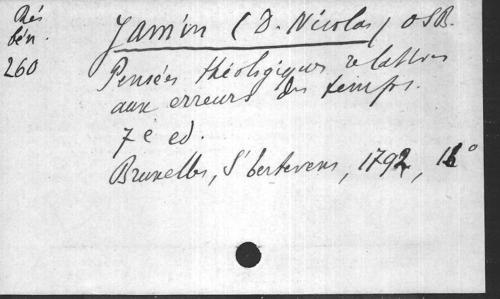 Rés
bén.
260
Jamin (D. Nicolas) OSB.
Pensées théologiques relatives
aux erreurs des temps.
7e ed.
Bruxelles, S'bertevens, 1792, 16°